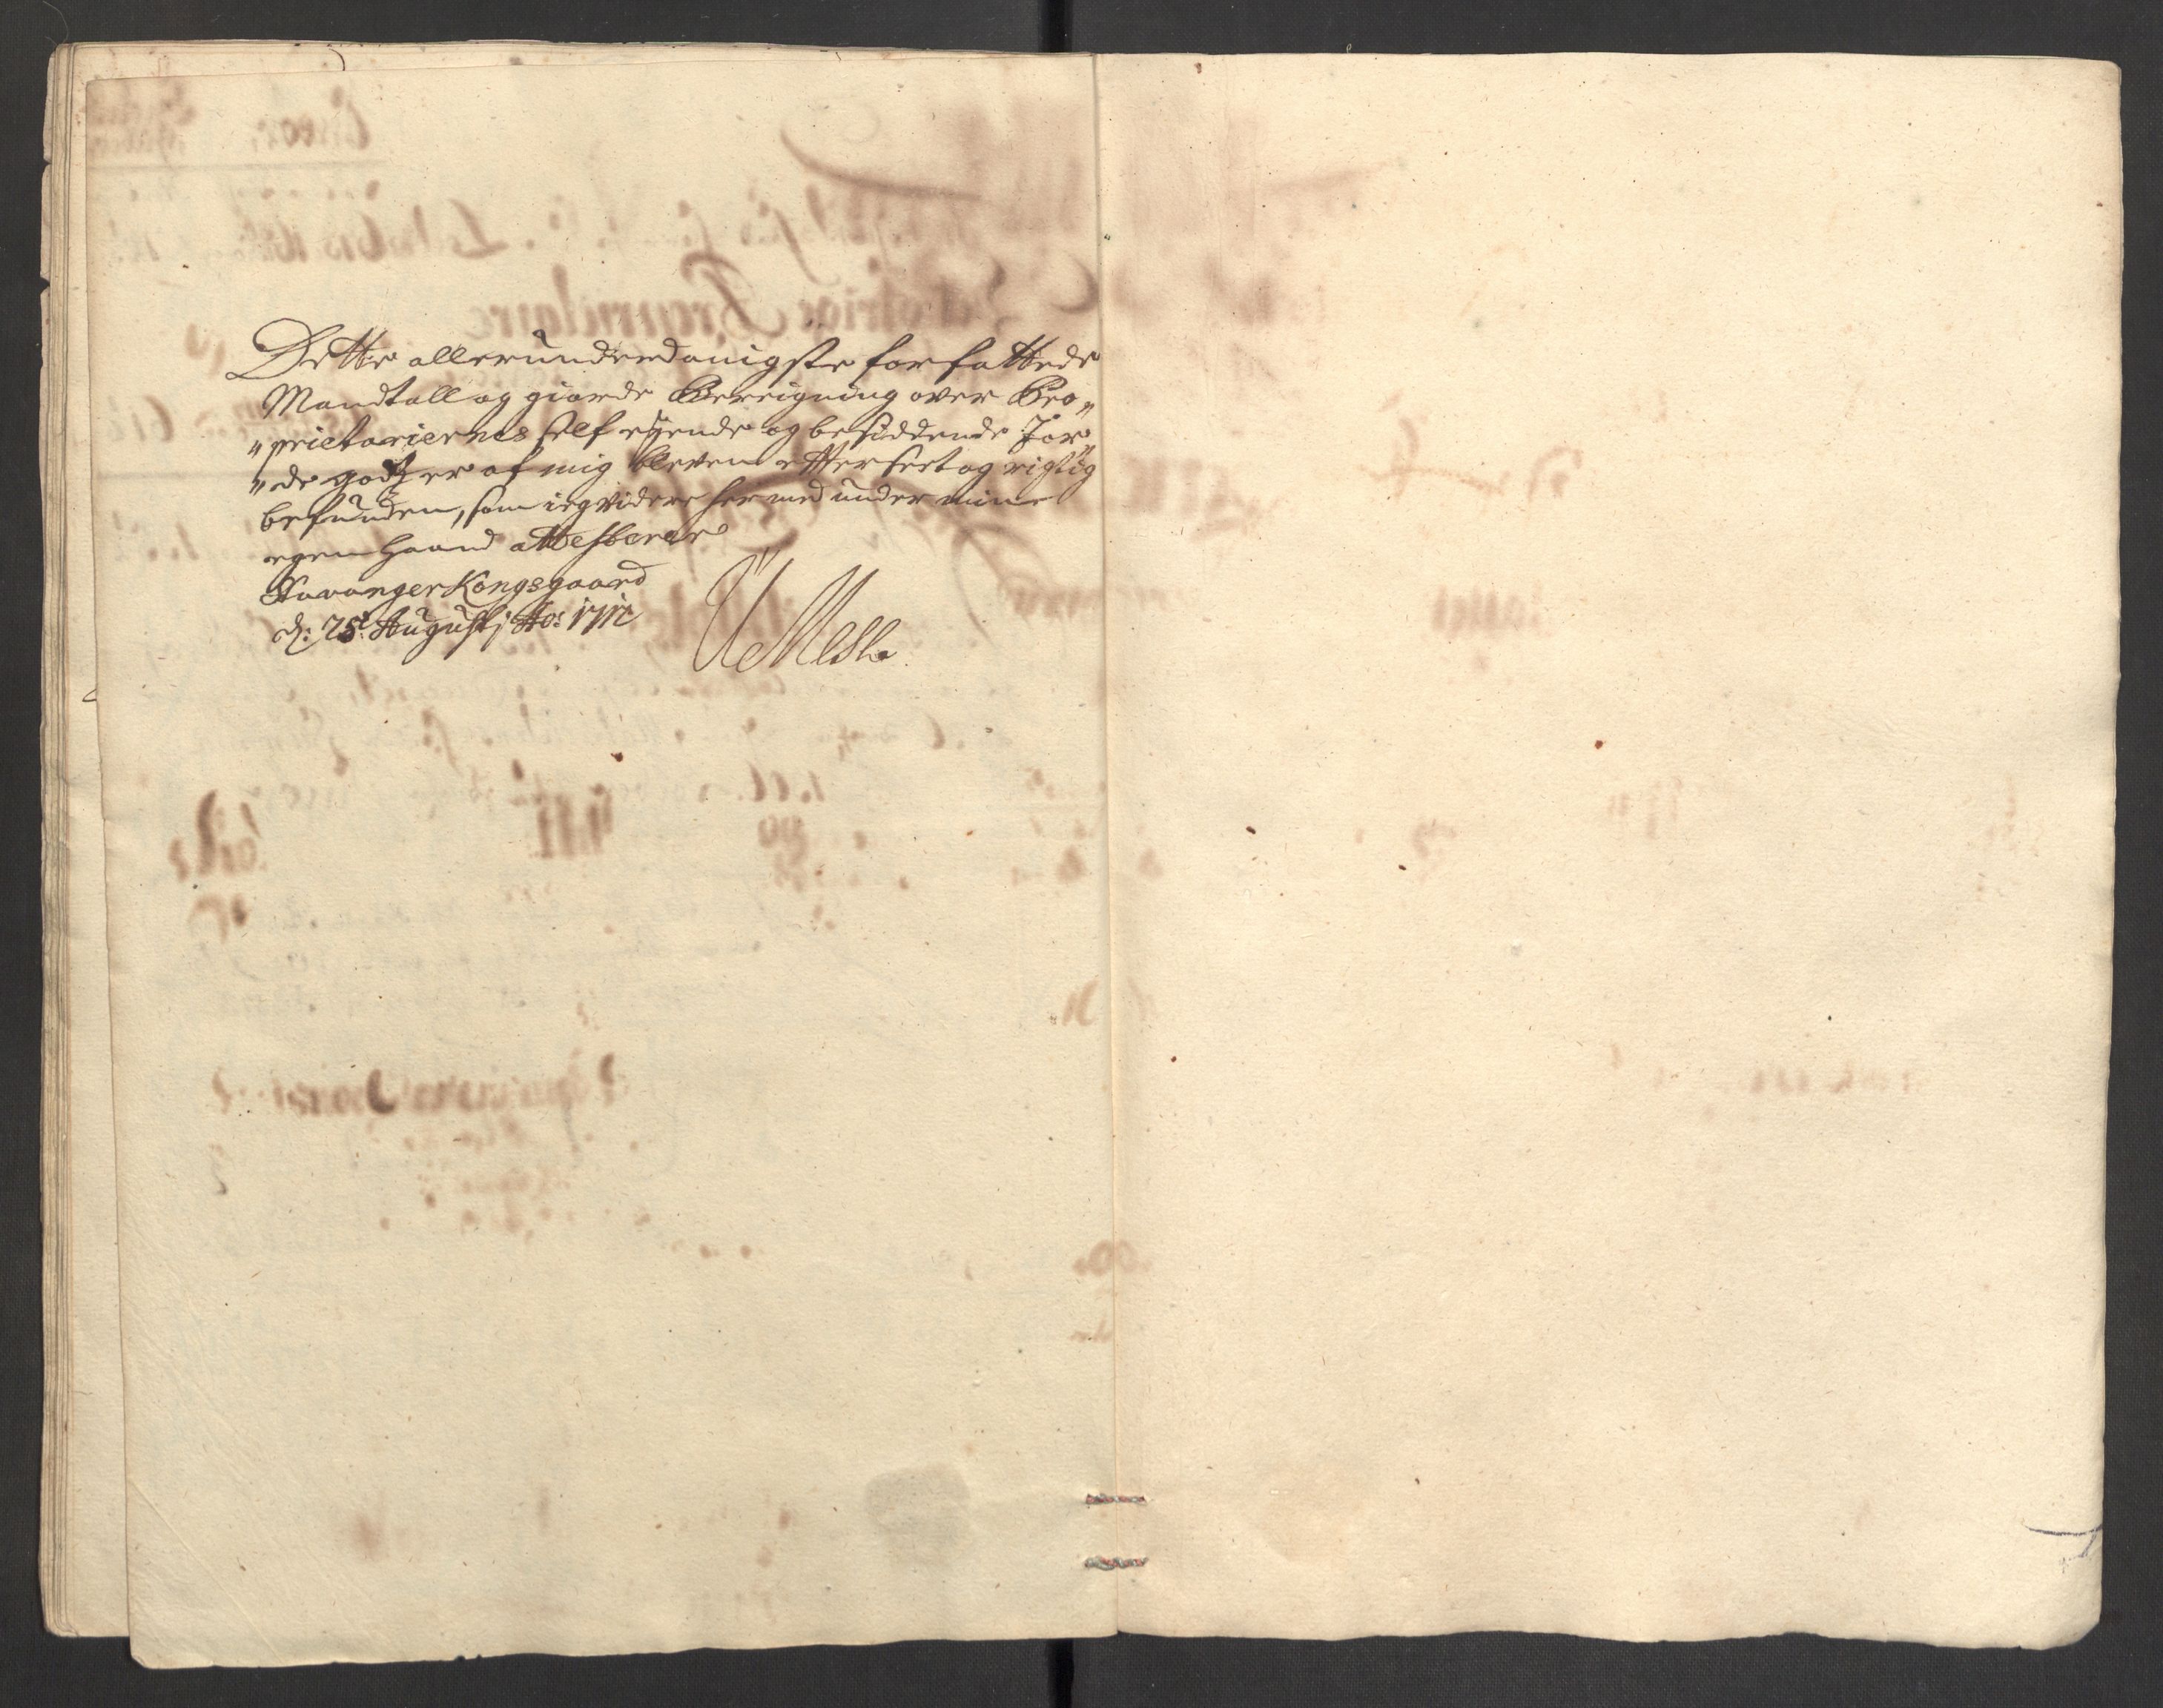 Dette allerunderdanigste forfattede
Mandtall og giorde Bereigning over Pro„
„prietariernes self egende og besiddende Jor„
„de godtz er af mig bleven efterseet og rigtig
befunden, som ieg videre her med under min
egen Haand attesterer
Stavanger Kongsgaard
d: 25t August: Ao: 1712